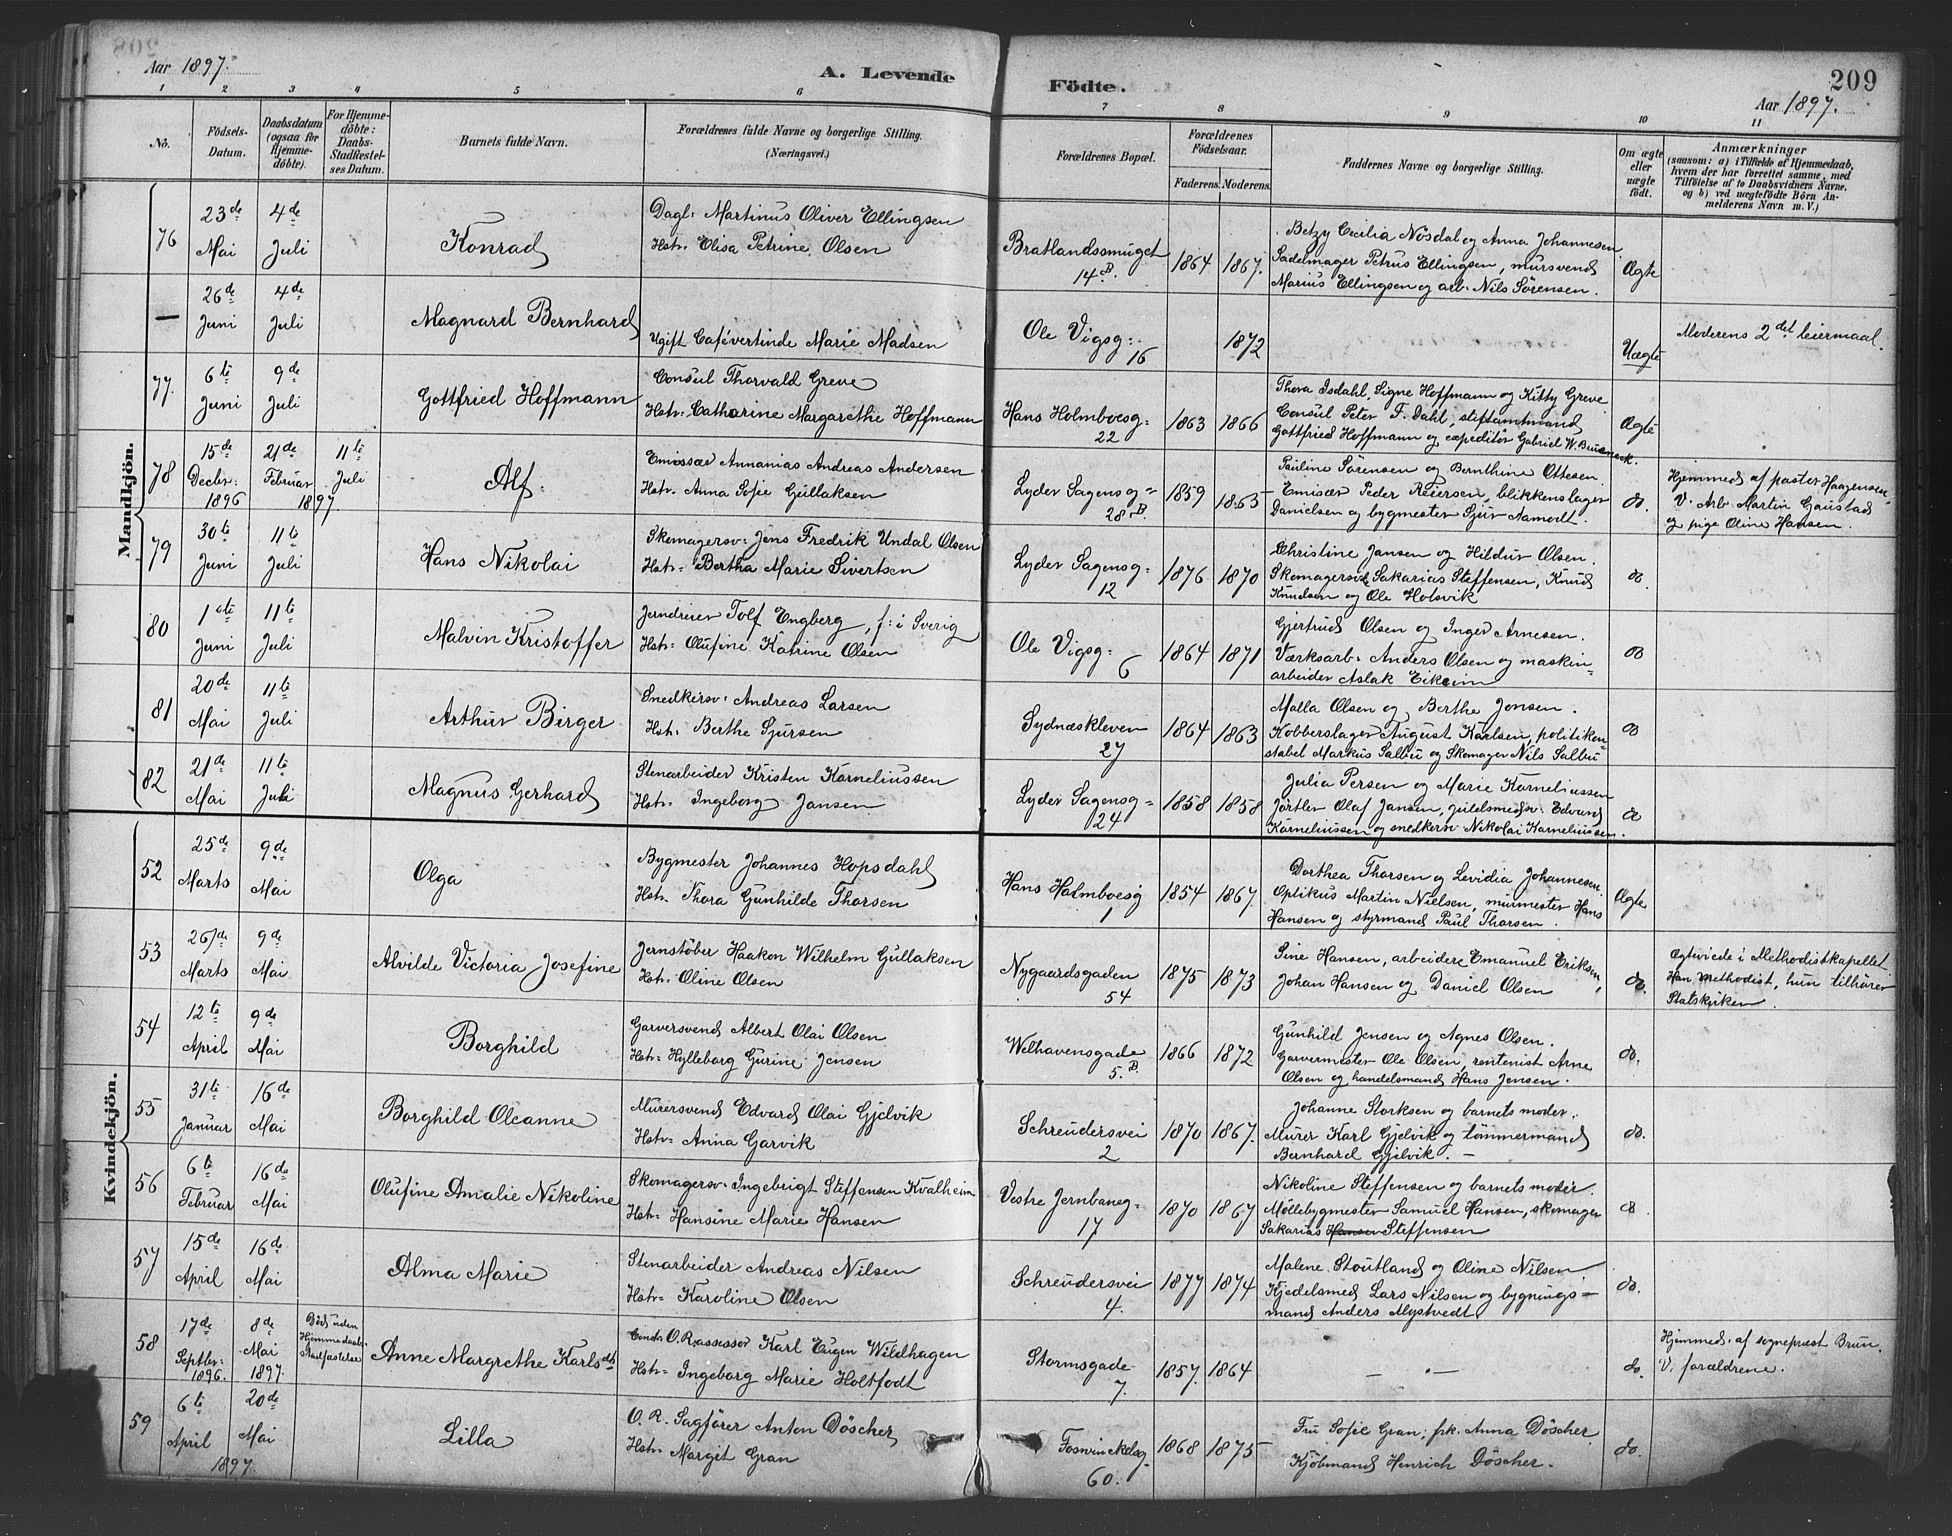 Aar 1897.
A. Levende
Födte.
209
Aar 1897.
1 2 3 4 5 6 7 8 9 10 11
No.
Födsels-
Datum.
Daabsdatum
(ogsaa for
Hjemme-
döbte).
For Hjemme-
döbte:
Daabs-
Stadfæstel-
ses Datum.
Barnets fulde Navn.
Forældrenes fulde Navne og borgerlige Stilling.
(Næringsvei.)
Forældrenes Bopæl.
Forældrenes
Födselsaar.
Faderens. Moderens.
Faddernes Navne og borgerlige Stilling.
Om ægte
eller
uægte
födt.
Anmærkninger
(saasom: a) i Tilfælde af Hjemmedaab,
hvem der har forrettet samme, med
Tilföielse af to Daabsvidners Navne,
og b) ved uægtefödte Börn An-
melderens Navn m. V.)
Mandkjön.
76
23de
Mai
4de
Juli
Konrad
Dagl: Martinus Oliver Ellingsen
Hstr: Elisa Petrine Olsen
Bratlandssmuget
14 B.
1864
1867.
Betzy Cecilia Nösdal og Anna Johannesen
Sadelmager Petrus Ellingsen, mursvend
Marius Ellingsen og arb. Nils Sörensen.
Ægte
—
26de
Juni
4de
Juli
Magnard Bernhard
Ugift Cafévertinde Marie Madsen
Ole Vigsg:
16
1872
Uægte
Moderens 2det leiermaal.
77.
6te
Juni
9de
Juli
Gottfried Hoffmann
Consul Thorvald Greve
Hstr: Catharine Margarethe Hoffmann
Hans Holmboesg:
22
1863
1866
Thora Isdahl, Signe Hoffmann og Kitty Greve.
Consul Peter F. Dahl, stiftamtmand
Gottfried Hoffmann og expeditör Gabriel W.
Ægte
78
15de
Decbr:
1896
21de
Februar
1897.
11te
Juli
Alf.
Emissær Annanias Andreas Andersen
Hstr: Anna Sofie Gullaksen
Lyder Sagensg=
28 B.
1859
1865
Pauline Sörensen og Bernthine Ottesen.
Emisær Peder Reiersen, blikkenslager
Danielsen og bygmester Sjur Aamodt.
do.
Hjemmed. af pastor Haagensen
V. Arb Martin Gaustad
og pige Oline Hansen.
79
30te
Juni
11te
Juli
Hans Nikolai
Skomagersv: Jens Fredrik Undal Olsen
Hstr: Bertha Marie Sivertsen
Lyder Sagensg=
12
1876
1870
Christine Jansen og Hildur Olsen.
Skomagersvde Sakarias Steffensen, Knud
Knudsen og Ole Holsvik
do.
80
1ste
Juni
11te
Juli
Malvin Kristoffer
Jerndreier Tolf Engberg, f: i Sverig
Hstr: Olufine Katrine Olsen
Ole Vigsg:
6
1864
1871
Gjertrud Olsen og Inger Arnesen.
Værksarb: Anders Olsen og maskin=
arbeider Aslak Eikeim
do
81
20de
Mai
11te
Juli
Arthur Birger
Snedkersv: Andreas Larsen
Hstr: Berthe Sjursen
Sydnæskleven
27
1864
1863
Malla Olsen og Berthe Jensen.
Kobberslager August Karlsen, politikon=
stabel Markus Salbu og Skomager Nils Salbu
do
82
21de
Mai
11te
Juli
Magnus Gerhard
Stenarbeider Kristen Korneliussen
Hstr: Ingeborg Jansen
Lyder Sagensg=
24
1858
1858
Julia Persen og Marie Korneliussen
Jörtler Olaf Jansen, guldsmedsv: Edvard
Korneliussen og snedkersv Nikolai Korneliussen.
do
Kvindekjön.
52
25de
Marts
9de
Mai
Olga
Bygmester Johannes Hopsdahl
Hstr. Thora Gunhilde Thorsen
Hans Holmboesg
1
1854
1867.
Dorthea Thorsen og Levidia Johannesen.
Optikus Martin Nielsen, murmester Hans
Hansen og styrmand Paul Thorsen.
Ægte
53
26de
Marts
9de
Mai
Alvilde Victoria Josefine
Jernstöber Haakon Wilhelm Gullaksen
Hstr: Oline Olsen
Nygaardsgaden
54
1875
1873
Sine Hansen, arbeidere Emanuel Eriksen,
Johan Hansen og Daniel Olsen
do.
Ægteviede i Methodistkapellet
Han Methodist, hun tilhörer
Statskirken.
54
12te
April
9de
Mai
Borghild
Garversvend Albert Olai Olsen
Hstr: Hylleborg Gurine Jensen
Welhavensgade
5 B.
1866
1872
Gunhild Jensen og Agnes Olsen.
Garvermester Ole Olsen, rentenist Arne
Olsen og handelsmand Hans Jensen.
do.
55
31te
Januar
16de
Mai
Borghild Oleanne
Murersvend Edvard Olai Gjelvik
Hstr: Anna Garvik
Schreudersvei
2
1870
1867.
Johanne Storksen og barnets moder.
Murer Karl Gjelvik og tömmermand
Bernhard Gjelvik. —
do.
56
6te
Februar
16de
Mai
Olufine Amalie Nikoline
Skomagersv: Ingebrigt Steffensen Kvalheim
Hstr: Hansine Marie Hansen
Vestre Jernbaneg=
17
1870
1867
Nikoline Steffensen og barnets moder.
Möllebygmester Samuel Hansen, skomager
Sakarias Hansen Steffensen
do
57
15de
April
16de
Mai
Alma Marie
Stenarbeider Andreas Nilsen
Hstr: Karoline Olsen
Schreudersvei
4.
1877
1874
Malene Stoutland og Oline Nilsen.
Kjedelsmed Lars Nilsen og bygnings=
mand Anders Mystvedt
do.
58
17de
Septbr:
1896.
8de
Mai
1897.
Död uden
Hjemmedaabs
Stadfæstelse
Anne Margrethe Karlsdtr
Const. O. R. assessor Karl Eugen Wildhagen
Hstr: Ingeborg Marie Holtfodt
Stormsgade
7.
1857.
1864
— —
do.
Hjemmed. af sogneprest Brun.
V. forældrene.
59
6te
April
20de
Mai
1897.
Lilla
O. R. Sagförer Anton Döscher
Hstr: Margit Gran
Fosswinckelsg.
60.
1868
1875
Fru Sofie Gran; frk. Anna Döscher
Kjöbmand Henrich Döscher.
do.